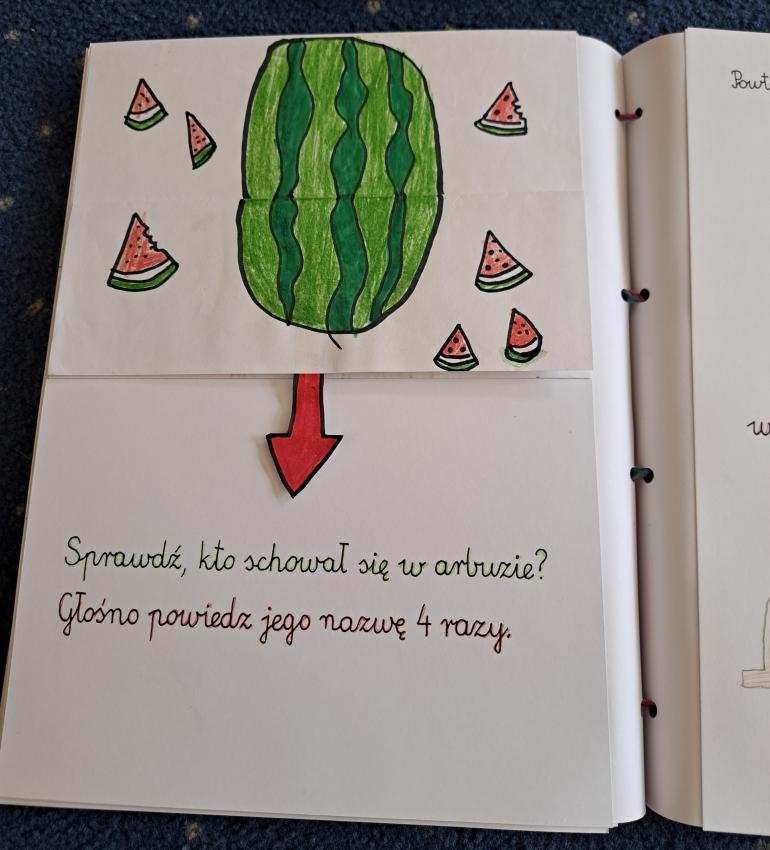 Sprawdź, kto schował się w arbuzie?
Głośno powiedz jego nazwę 4 razy.